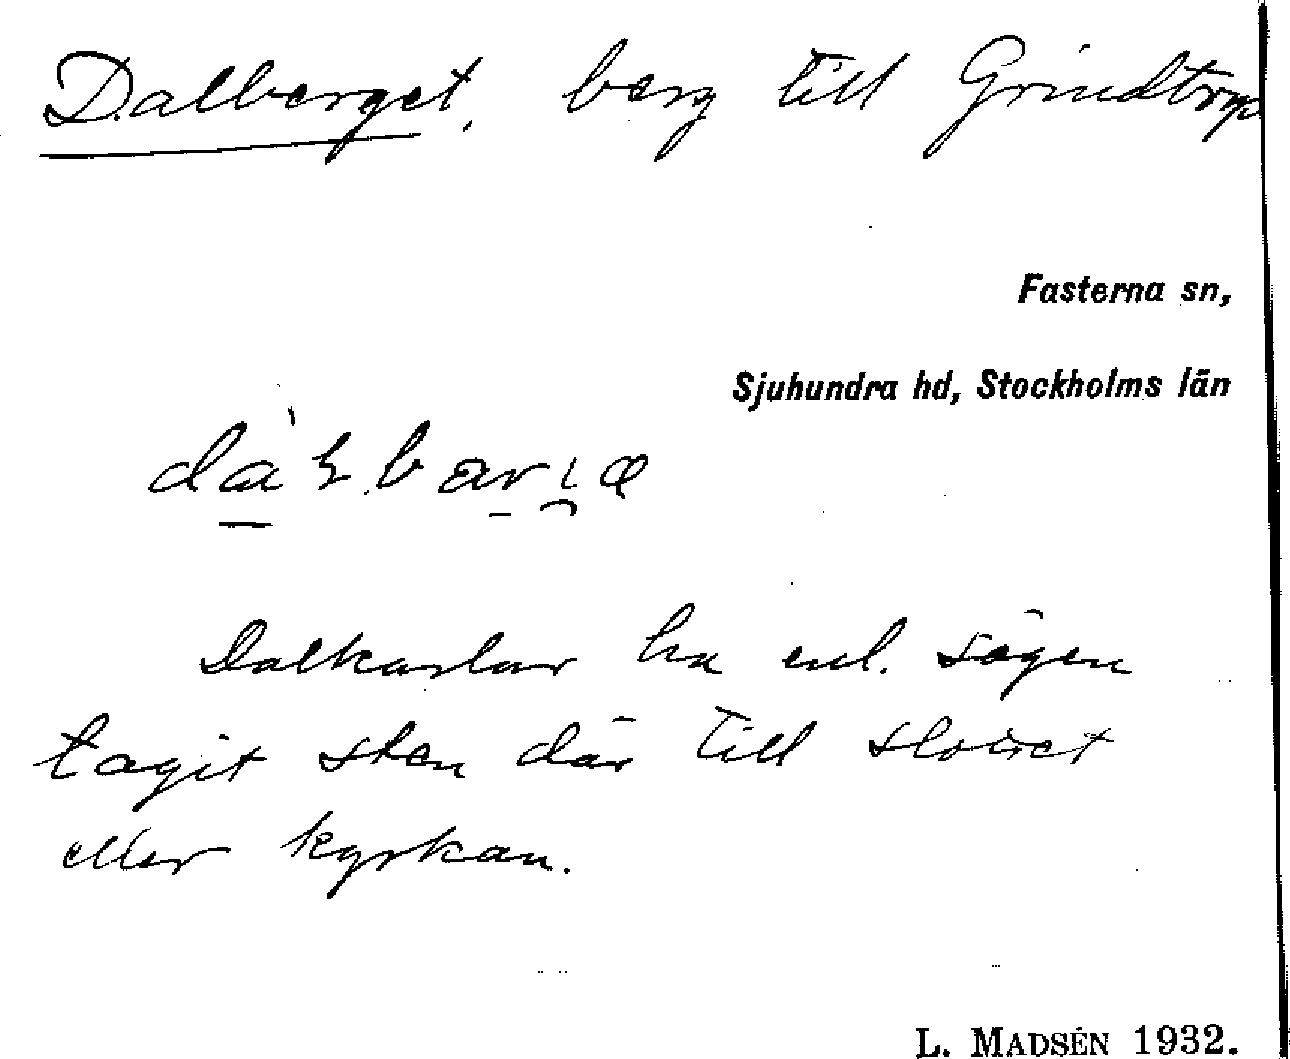 Dalberget, berg till Grindtorp
Fasterna sn,
Sjuhundra hd, Stockholms län
Dalkarlar ha enl. sägen
tagit sten där till slottet
eller kyrkan.
L. MADSÉN 1932.